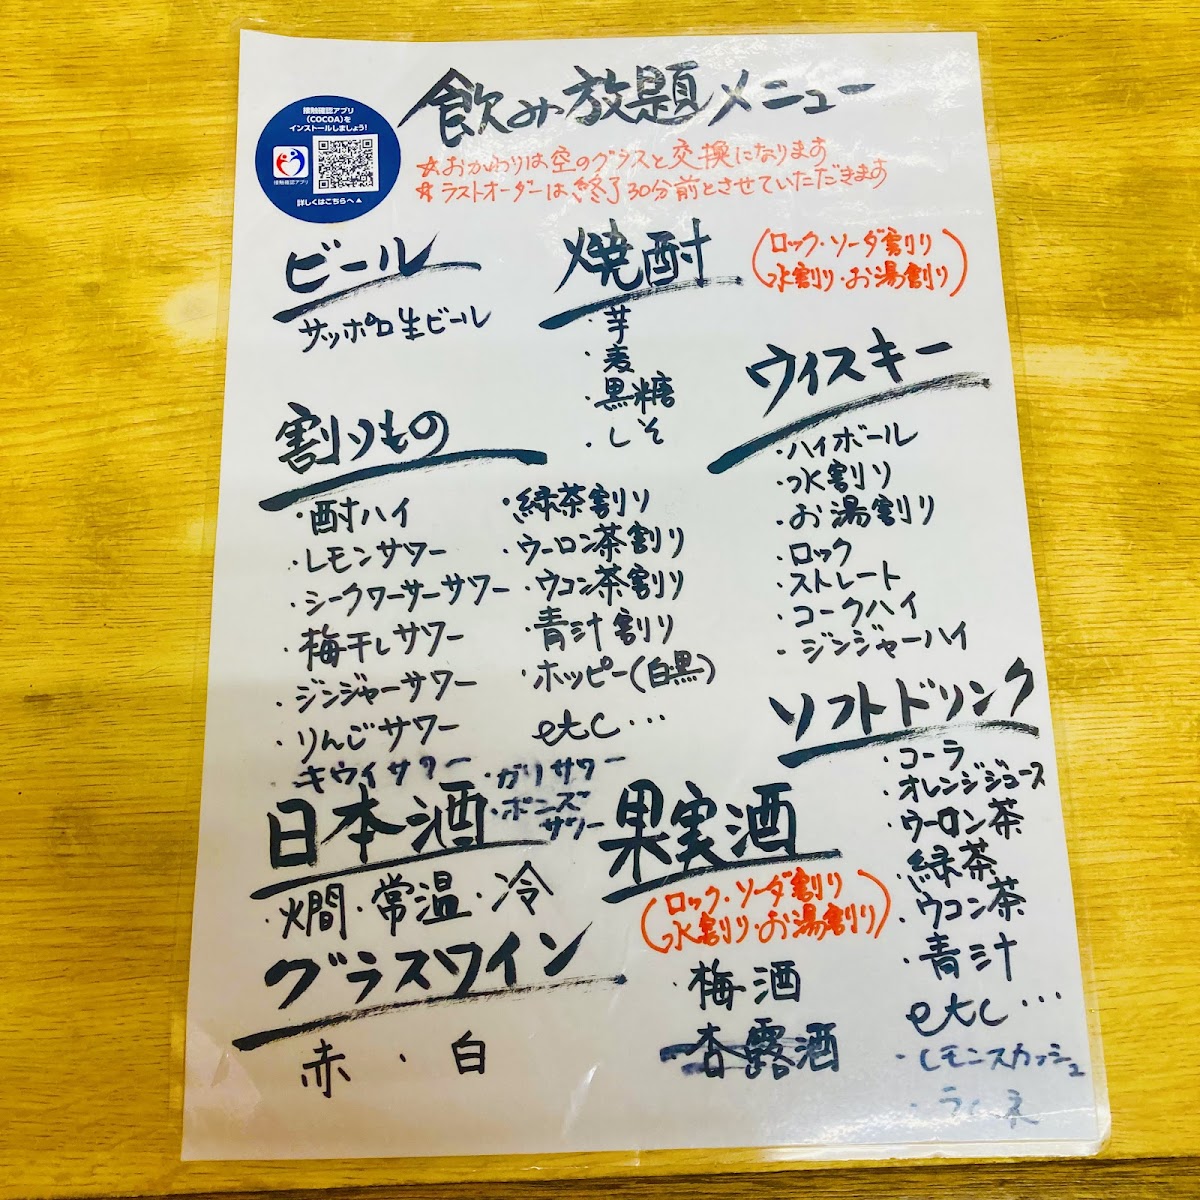 飲み放題メニュー
接触確認アプリ
(COCOA)を
インストールしましょう!
接触確認アプリ
詳しくはこちらへ▲
☆おかわりは空のグラスと交換になります
☆ラストオーダーは終了30分前とさせていただきます
ビール
サッポロ生ビール
焼酎
(ロック・ソーダ割り
水割り・お湯割り)
・芋
・麦
・黒糖
・しそ
ウィスキー
・ハイボール
・水割り
・お湯割り
・ロック
・ストレート
・コークハイ
・ジンジャーハイ
割りもの
・酎ハイ
・レモンサワー
・シークワーサーサワー
・梅干しサワー
・ジンジャーサワー
・りんごサワー
・キウイサワー
・緑茶割り
・ウーロン茶割り
・ウコン茶割り
・青汁割り
・ホッピー(白黒)
etc…
・ガリサワー
・ポンズ
サワー
ソフトドリンク
・コーラ
・オレンジジュース
・ウーロン茶
・緑茶
・ウコン茶
・青汁
etc…
・レモンスカッシュ
・ラムネ
日本酒
・燗・常温・冷
果実酒
(ロック・ソーダ割り
水割り・お湯割り)
・梅酒
・杏露酒
グラスワイン
赤・白